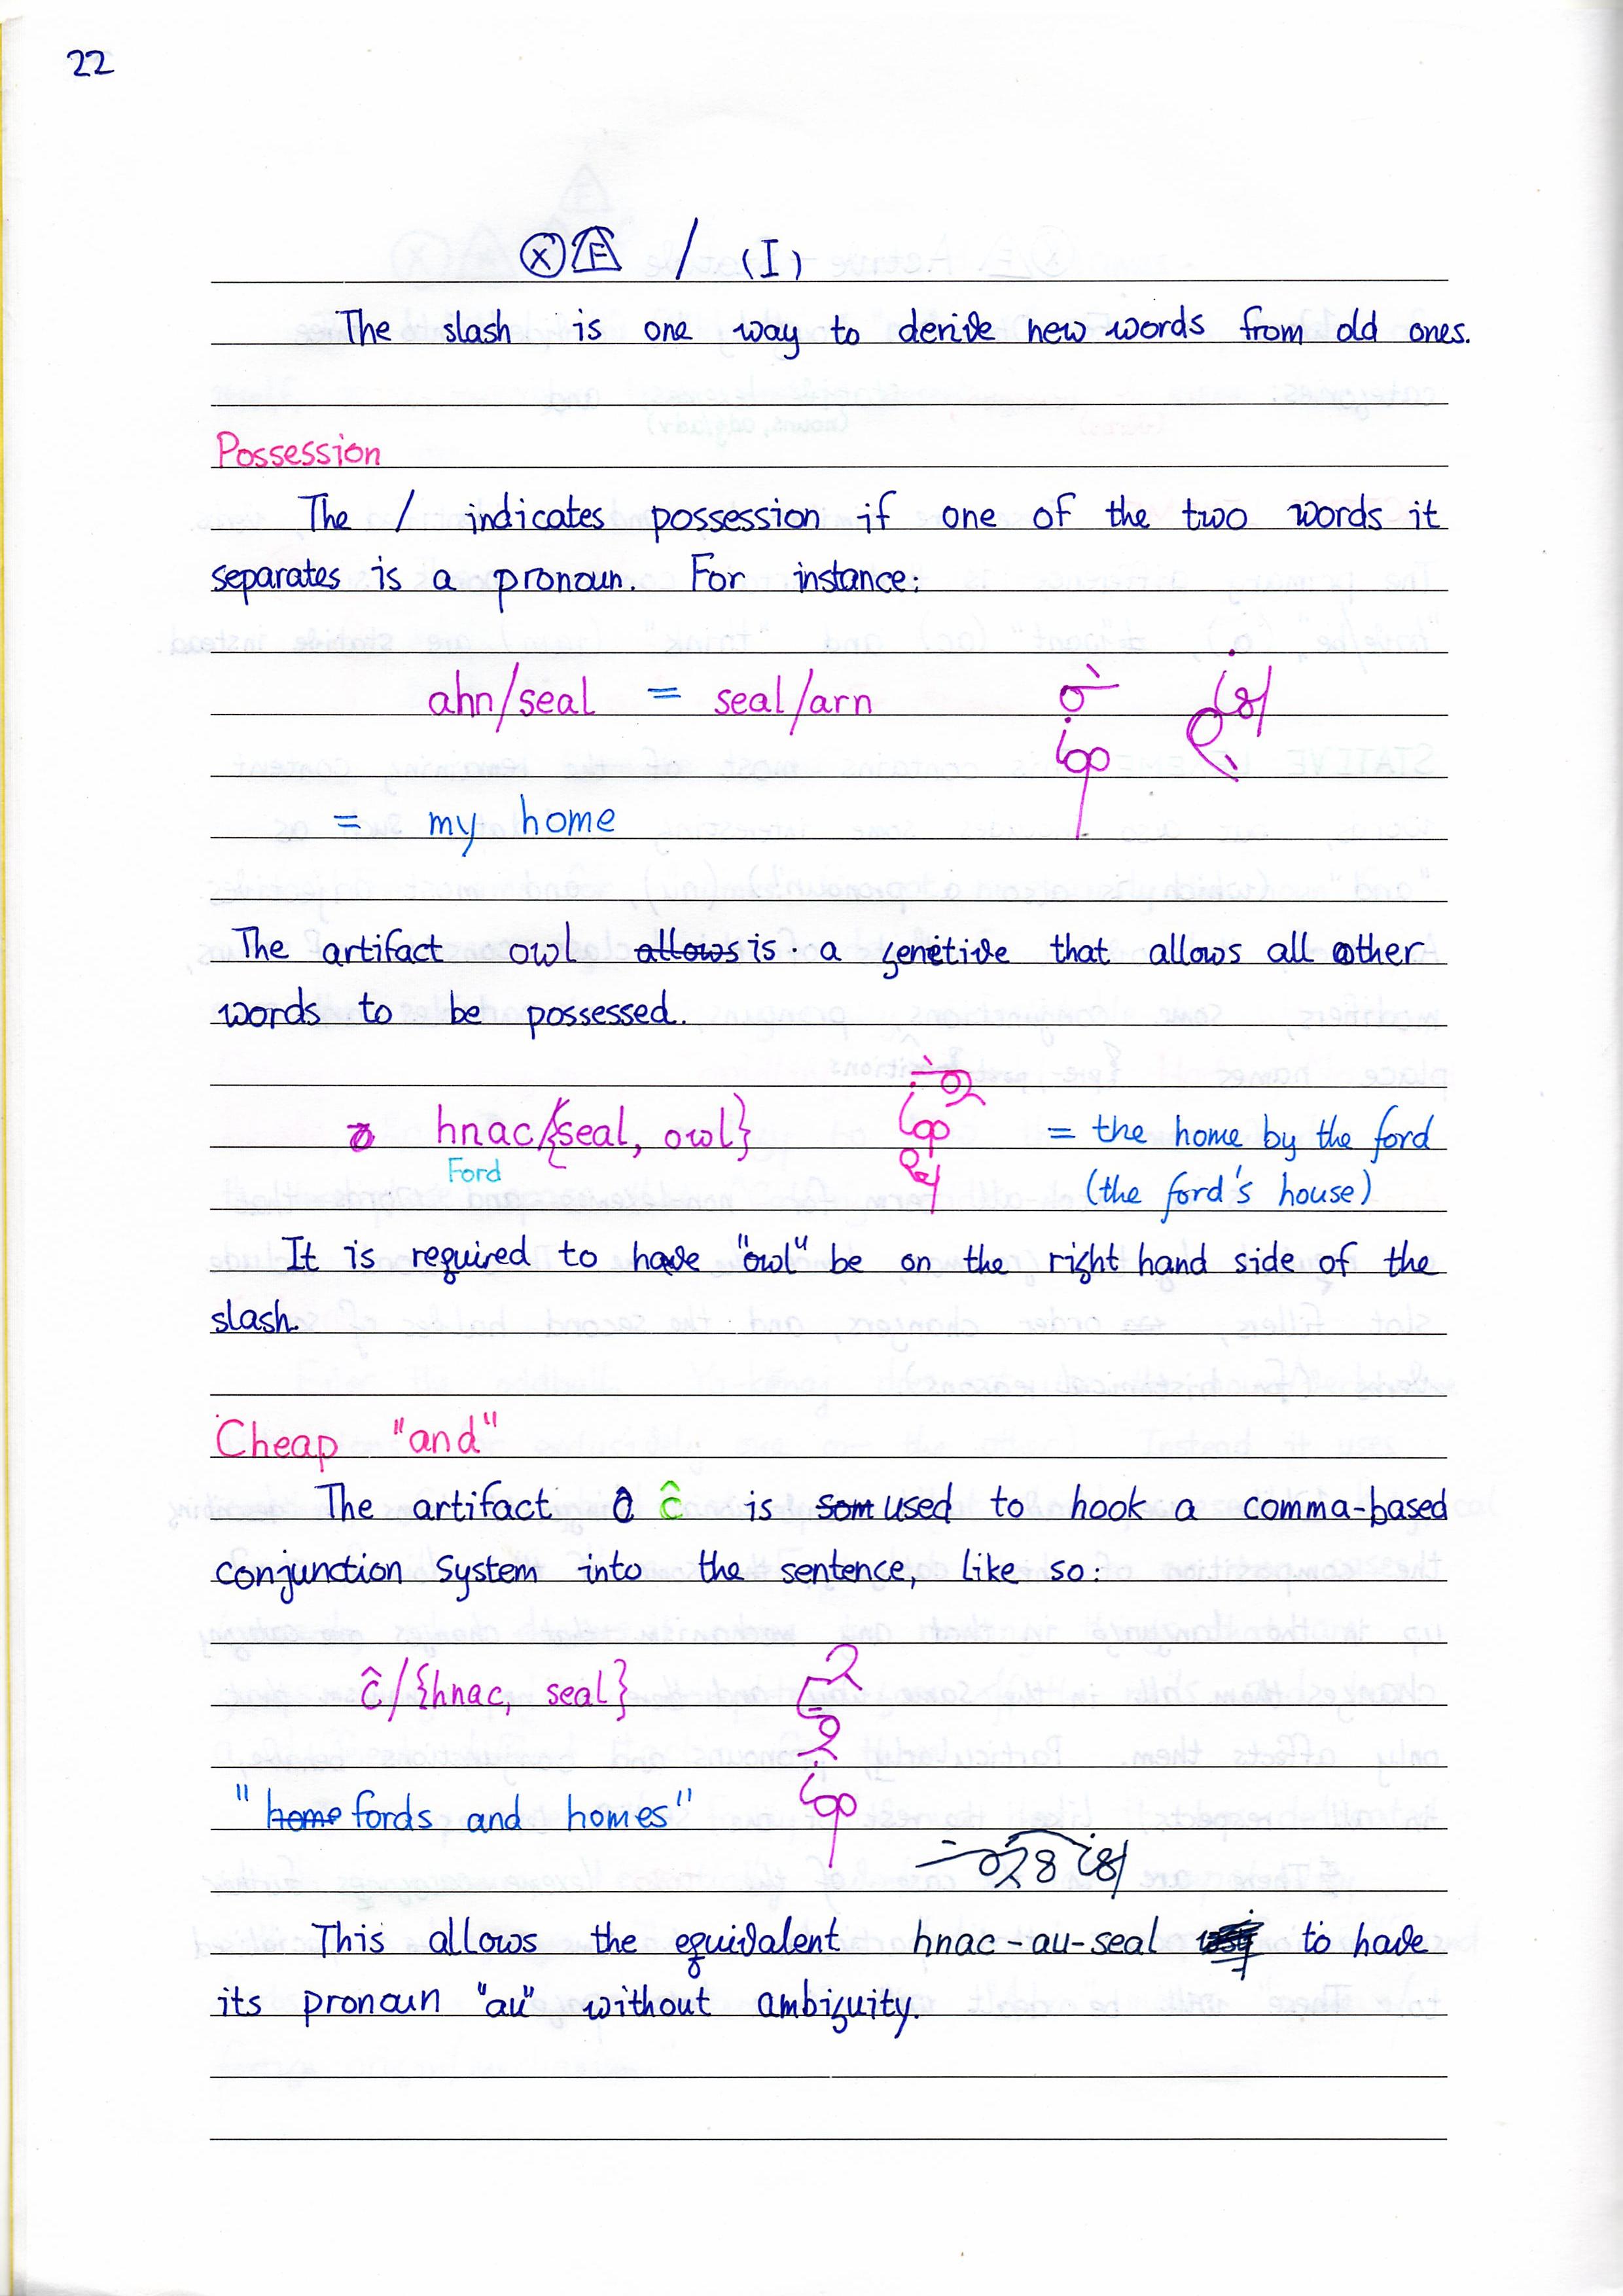 22
Ⓧ E / (I)
The slash is one way to derive new words from old ones.
Possession
The / indicates possession if one of the two words it
separates is a pronoun. For instance:
ahn/seal = seal/arn
= my home
The artifact owl allows is a genetive that allows all other
words to be possessed.
hnac/{seal, owl} = the home by the ford
Ford (the ford's house)
It is required to have "owl" be on the right hand side of the
slash.
Cheap "and"
The artifact ĉ is som used to hook a comma-based
conjunction system into the sentence, like so:
ĉ/{hnac, seal}
"home fords and homes"
This allows the equivalent hnac-au-seal to have
its pronoun "au" without ambiguity.